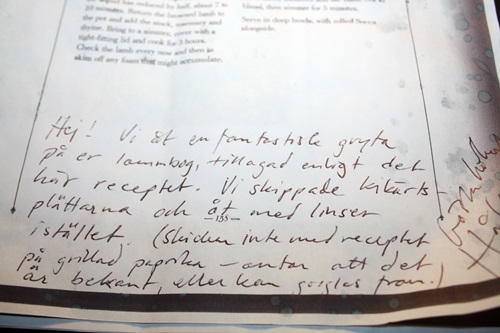 sauce has reduced by half, about 7 to
10 minutes. Return the browned lamb to
the pot and add the stock, rosemary and
thyme. Bring to a simmer, cover with a
tight-fitting lid and cook for 3 hours.
Check the lamb every now and then to
skim off any foam that might accumulate.
blend, then simmer for 5 minutes.
Serve in deep bowls, with rolled Socca
alongside.
Hej! Vi åt en fantastisk gryta
på er lammbog, tillagad enligt det
här receptet. Vi skippade kikärts-
plättarna och åt med linser
istället. (Skickar inte med receptet
på grillad paprika - antar att det
är bekant, eller kan googlas fram.)